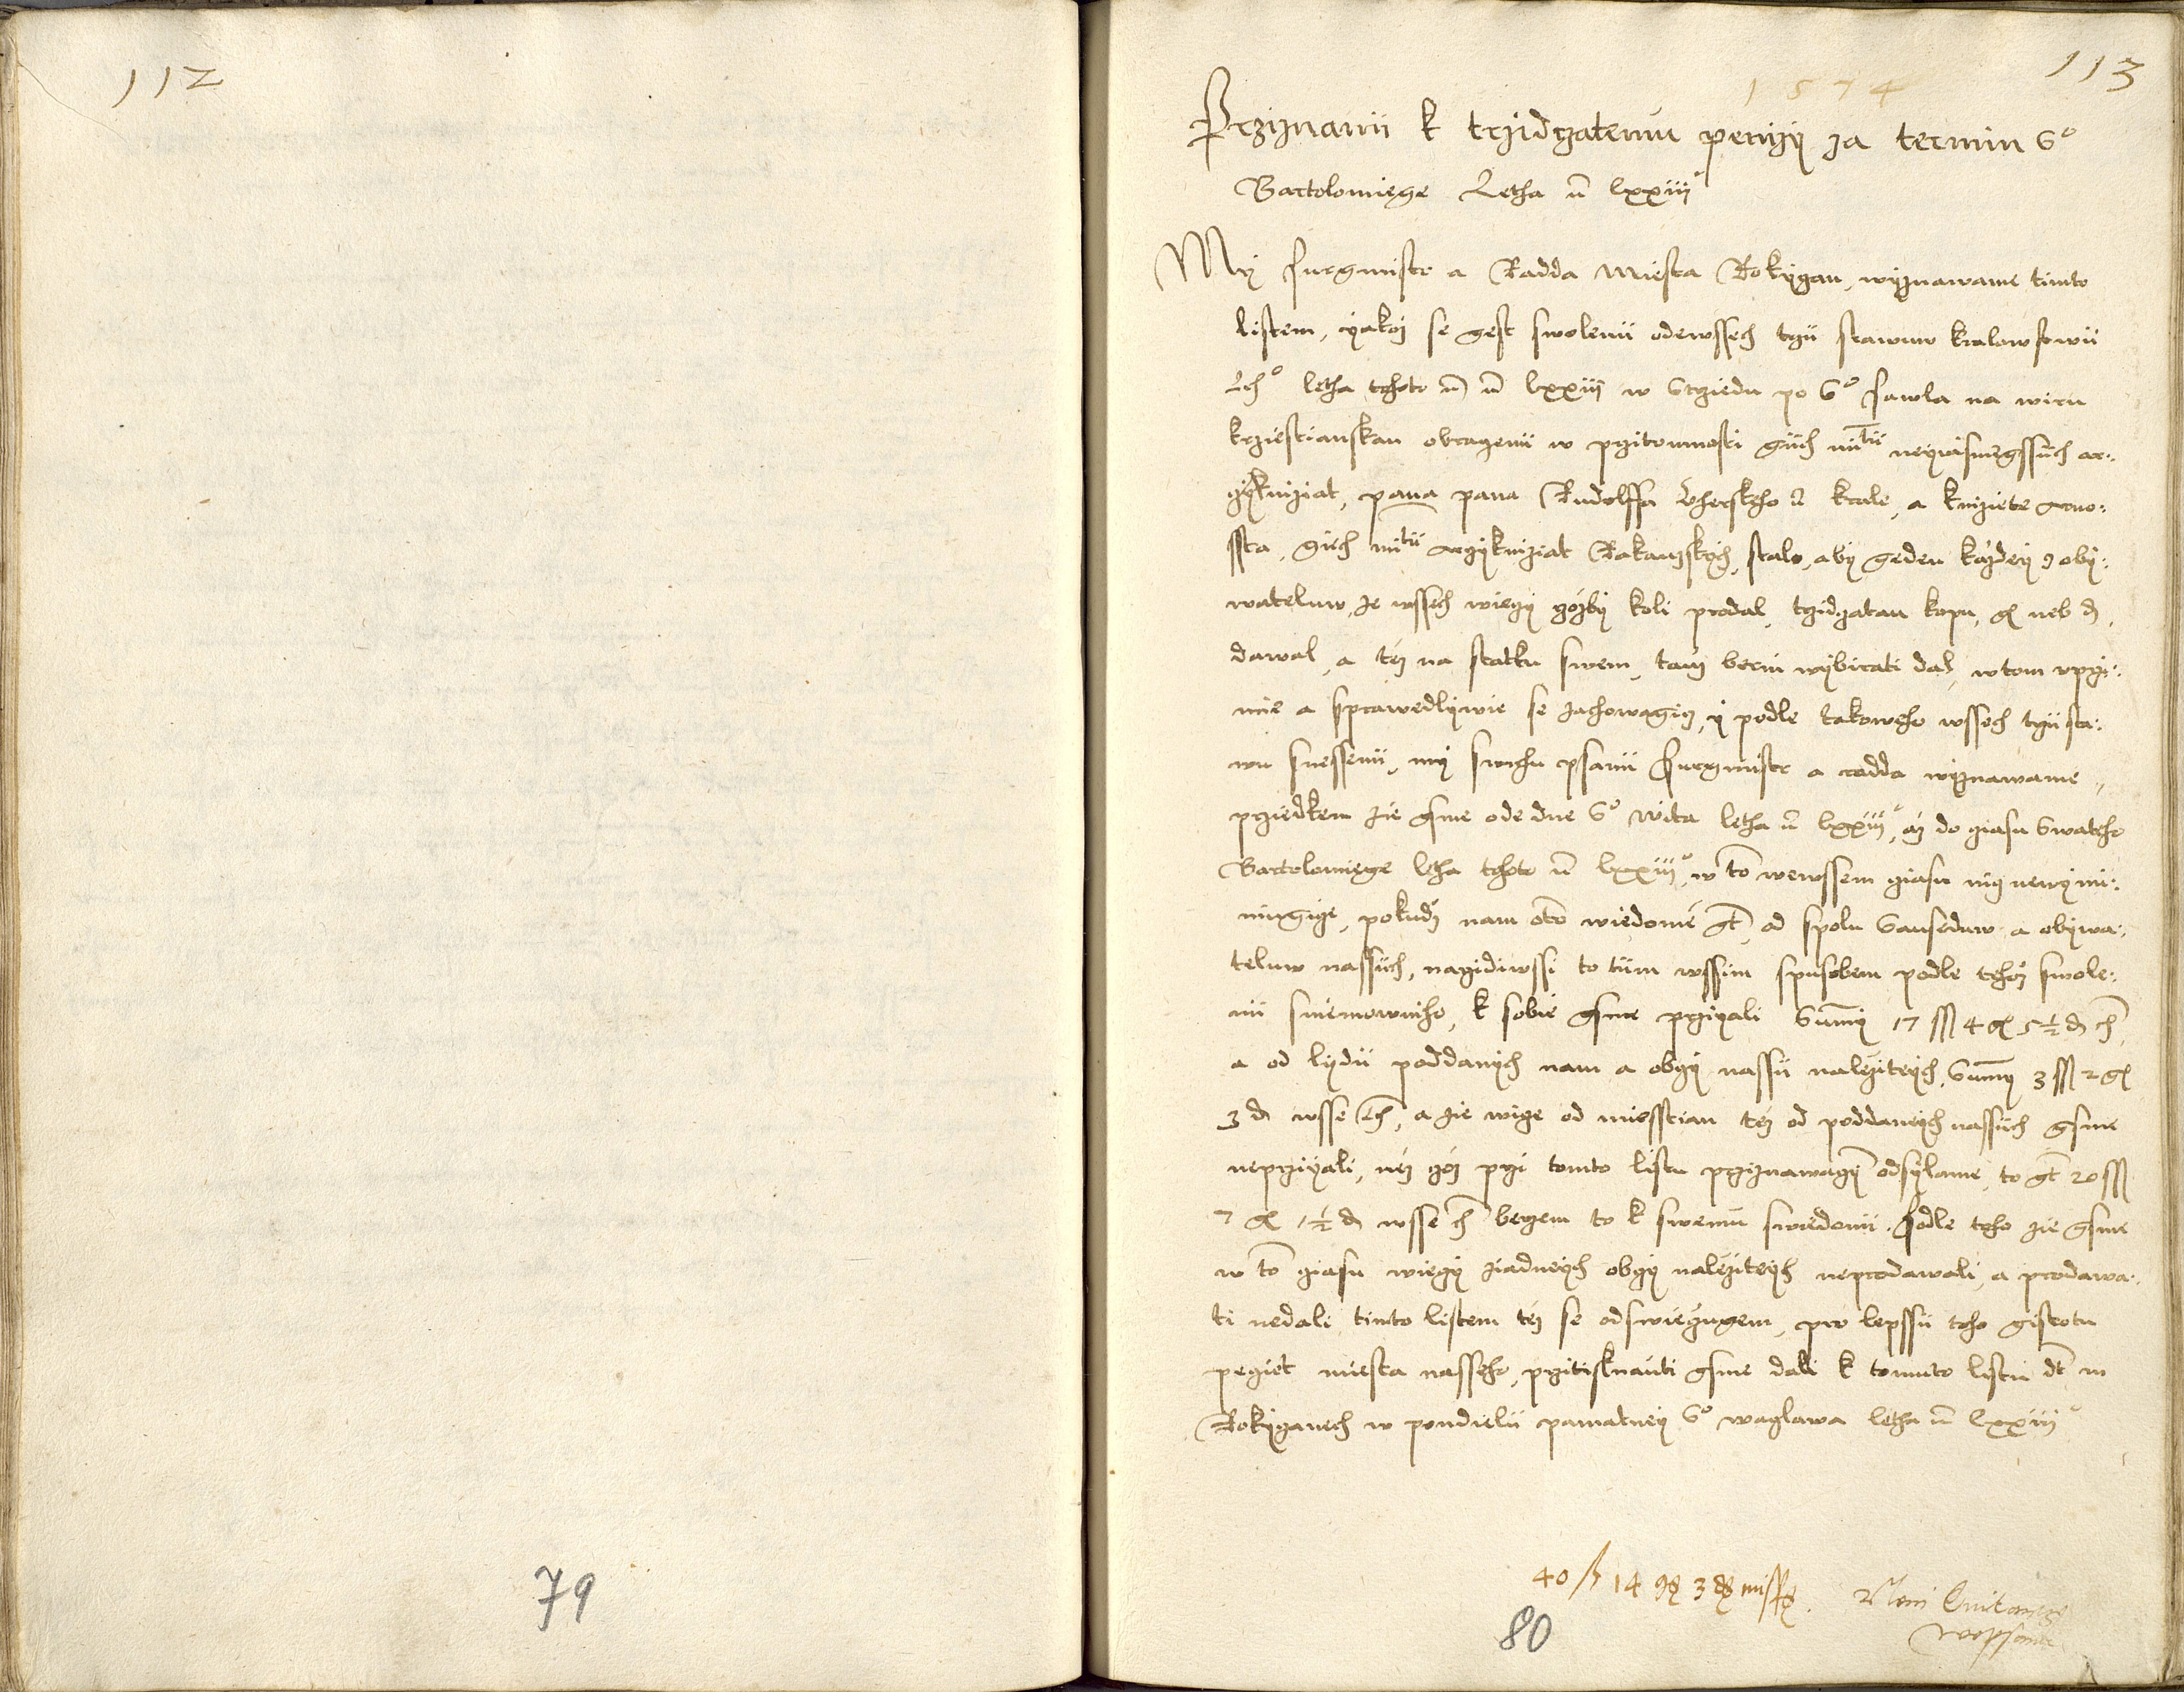 112
113
1574
Prziznanii k trzidczatemu penizy za termin So
Bartolomiege Letha ū lxxiiiio
My Purgmistr a Radda Miesta Rokyczan, wyznawame timto
listem, yakoz se gest swolenii odewssech tzii stawuw kralowstwii
Cžho letha tohoto ū lxxiiii w Strziedu po So Pawla na wiru
krziestianskau obraczenii w przitomnosti gich mitii neyiasnegssiich ar:
czykniziat, pana pana Rudolffa Uherskeho krale, a kniziete Arno:
ssta, giich mitii Arczykniziat Rakauskych, stalo, aby geden kazdey z oby:
wateluw, ze wssech wieczy czozby koli prodal, trzidczatau kopu, gř neb d,
dawal, a tez na statku swem, tauz berni wybirati dal, w tom uprzi:
mie a sprawedlywie se zachowagicz, y podle takoweho wssech trzii sta:
wu snessenii, my swrchu psanii Purgmistr a radda wyznawame,
przedkem zie gsme ode dne So Wita letha ū lxxiiiio, az do cziasu Swateho
Bartolomiege letha tohoto ū lxxiiiio, w to wewssem cziasu nicz newymi:
niugicze, pokudz nam oto wiedome gt, od spolu Sauseduw a obywa:
teluw nassiich, narzidiwssi to tiim wssim spusobem podle tehoz swole:
nii sniemowniho, k sobie gsme prziyali Summy 17 ss 4 gř 5½ d cž,
a od lydii poddanych nam a obczy nassii nalezitych, Summy 3 ss 2 gř
3 d wsse cžh, a zie wicze od miesstian tez od poddanych nassiich gsme
neprziyali, nez czoz przi tomto listu prziznawagicz odsylame, to gt 20 ss
7 gř 1½ d wsse cžh berzem to k swemu swiedomii. Podle toho zie gsme
w to cziasu wieczy ziadnych obczy nalezitych neprodawali, a prodawa:
ti nedali timto listem tez se odswieczugem, pro lepssii toho gistotu
peczet miesta nasseho, przitisknauti gsme dali k tomuto listu dt w
Rokyczanech w pondielii pamatney So waczlawa letha ū lxxiiiio
40 ß 14 gř 3 d missen.
Neni Quitancze
wepsana
79
80